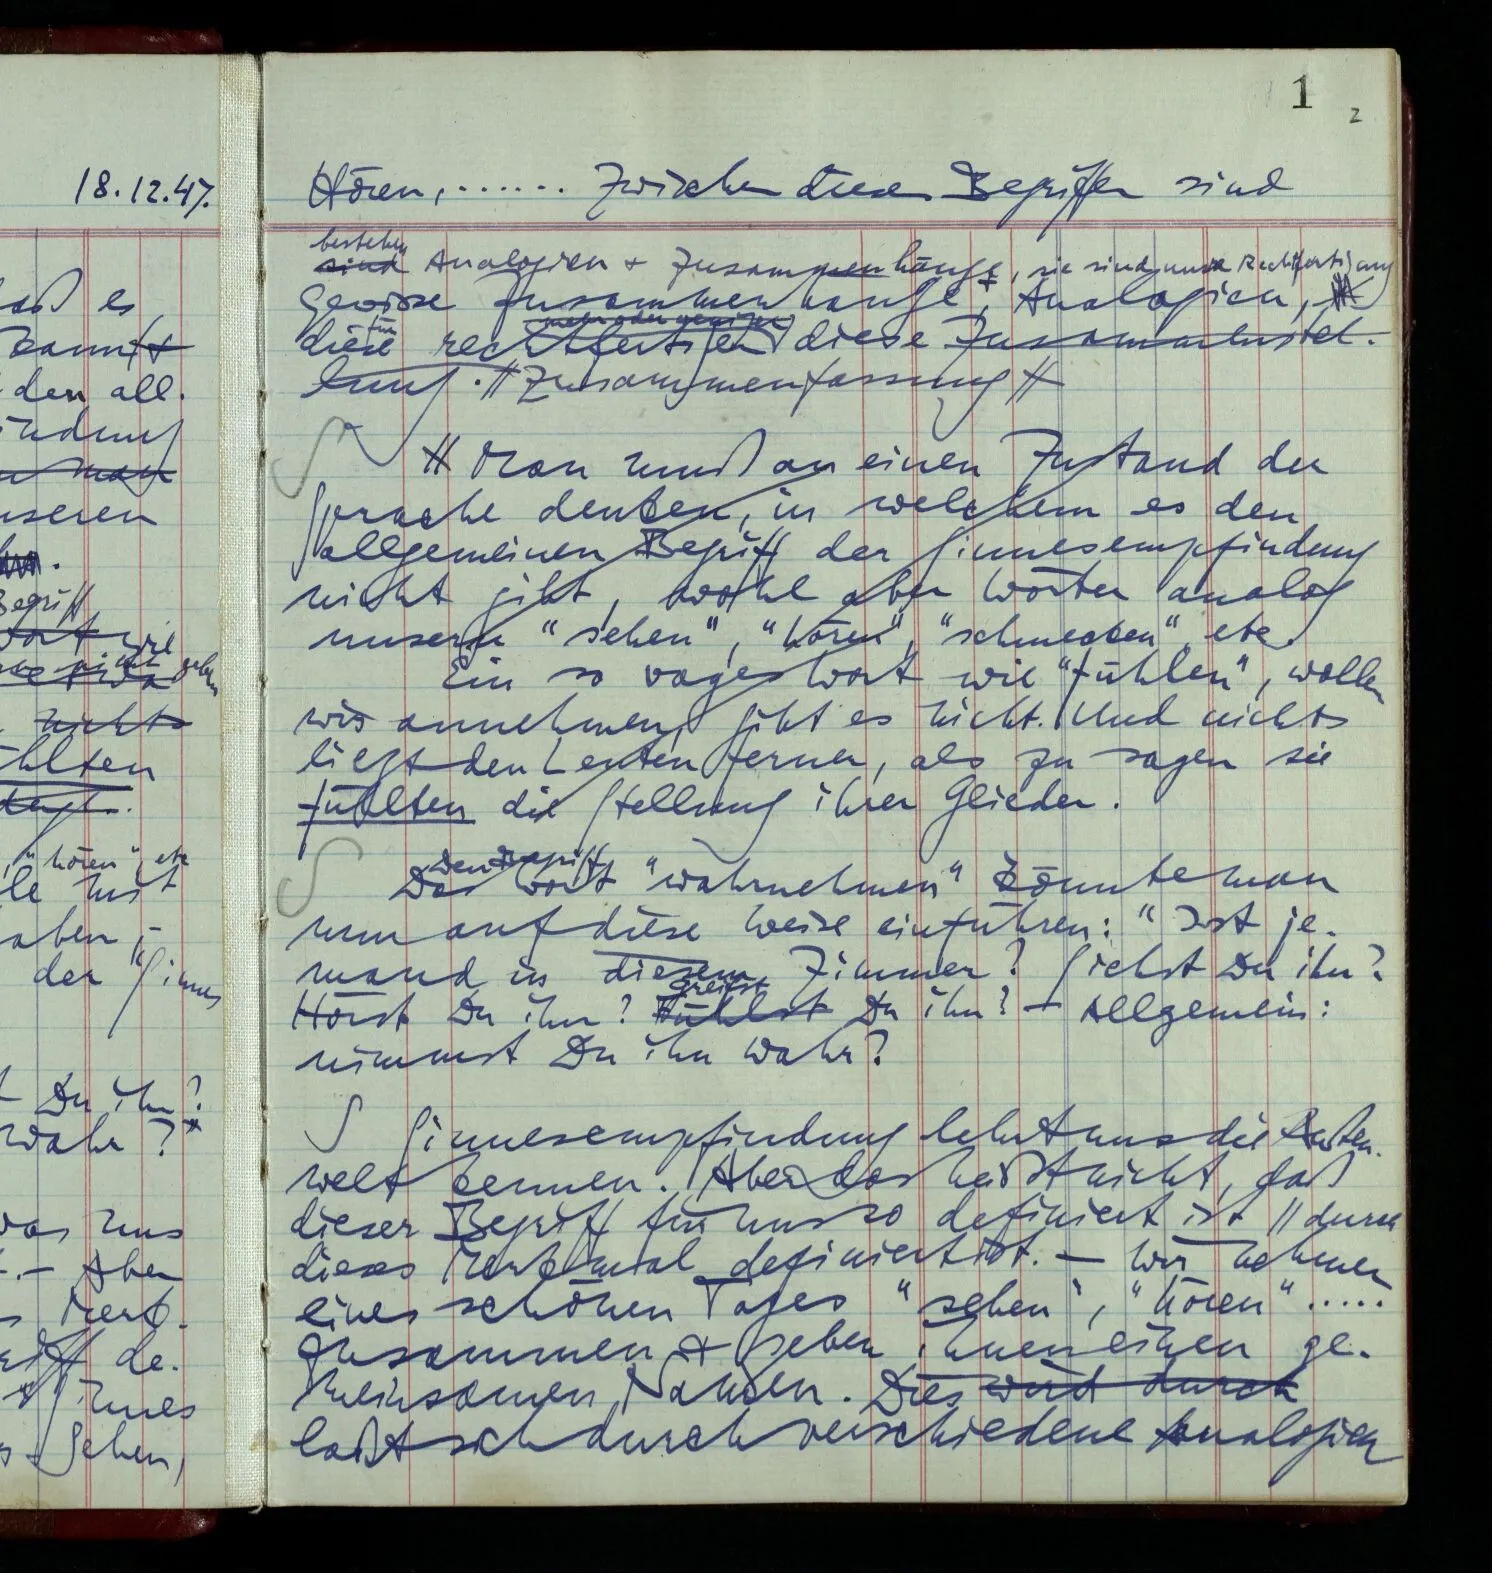 18.12.47.
daß es
den all.
indung
unseren
Begriff
wie
geben
nichts
fühlten
"hören", etc
mit
aben,-
der "Sinnes
Du ihn?
wahr?"
was uns
.- Aber
s Merk.
griff de.
Sinnes
s Sehen,
1
2
Hören, ...... Zwischen diesen Begriffen sind
bestehen
sind Analogien & Zusammenhänge, sie sind unsre Rechtfertigung
Gewisse Zusammenhänge &, Analogien,
für mehr oder weniger
diese rechtfertigen diese Zusammenstel-
lung. // Zusammenfassung //
// Man muß an einen Zustand der
Sprache denken, in welchem es den
allgemeinen Begriff der Sinnesempfindung
nicht gibt, wohl aber Wörter analog
unsern "sehen", "hören", "schmecken", etc.
Ein so vages Wort wie "fühlen", wollen
wir annehmen, gibt es nicht. Und nichts
liegt den Leuten ferner, als zu sagen sie
fühlten die Stellung ihrer Glieder.
Den Begriff
Das Wort "wahrnehmen" könnte man
nun auf diese Weise einführen: "Ist je-
mand in diesem Zimmer? Siehst Du ihn?
greifst
Hörst Du ihn? Fühlst Du ihn? – Allgemein:
nimmst Du ihn wahr?
∫ Sinnesempfindung lehrt uns die Außen-
welt kennen. Aber das heißt nicht, daß
dieser Begriff für uns so definiert ist // durch
dieses Merkmal definiert ist. – Wir nehmen
eines schönen Tages "sehen", "hören" .....
zusammen & geben ihnen einen ge-
meinsamen Namen. Dies wird durch
läßt sich durch verschiedene Analogien